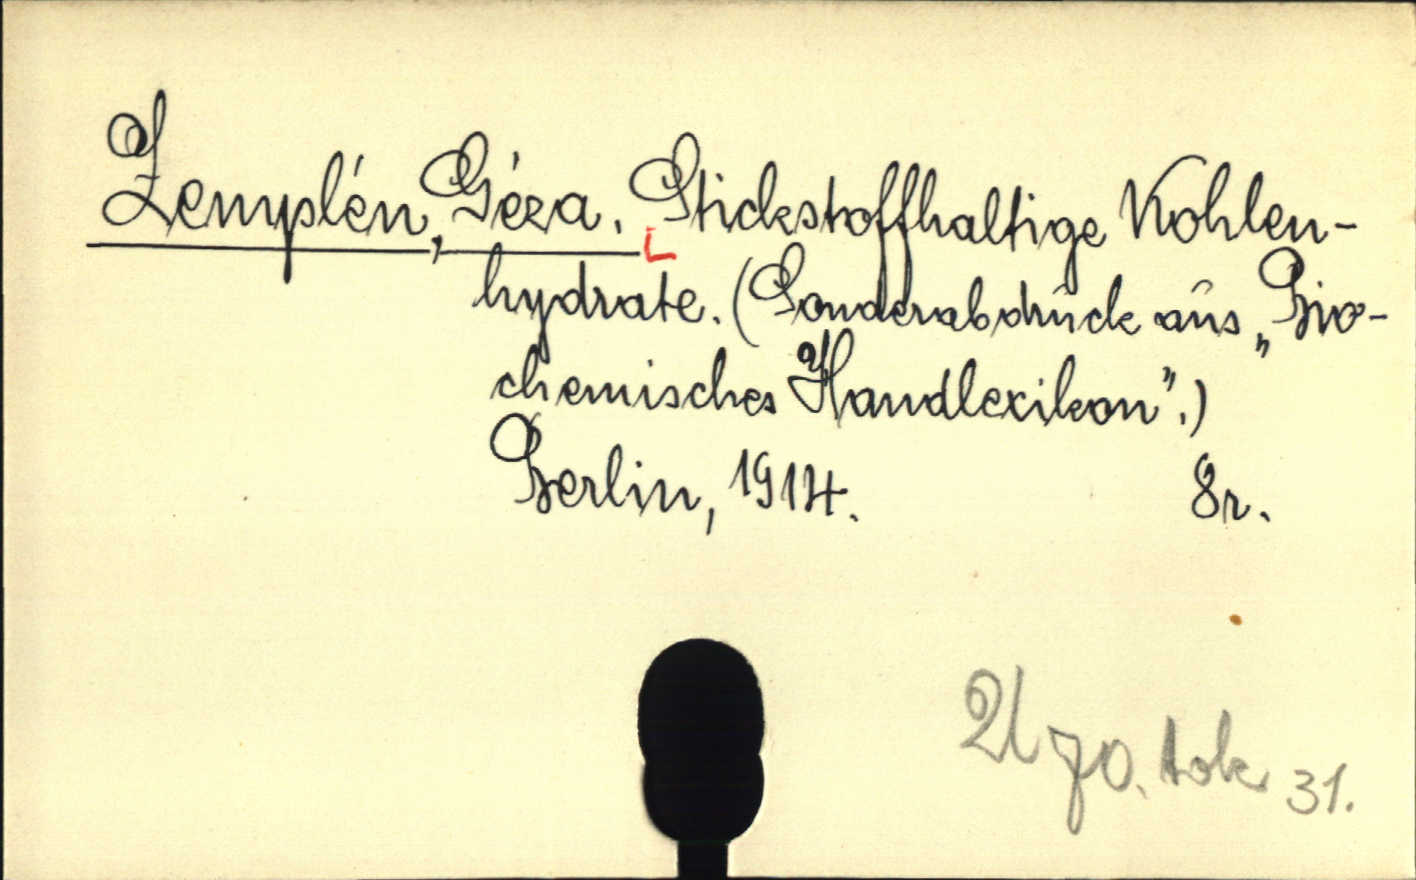 Zemplén, Géza. Stickstoffhaltige Kohlen-
hydrate. (Sonderabdruck aus „Bio-
chemisches Handlexikon".)
Berlin, 1914. 8r.
70. tok 31.